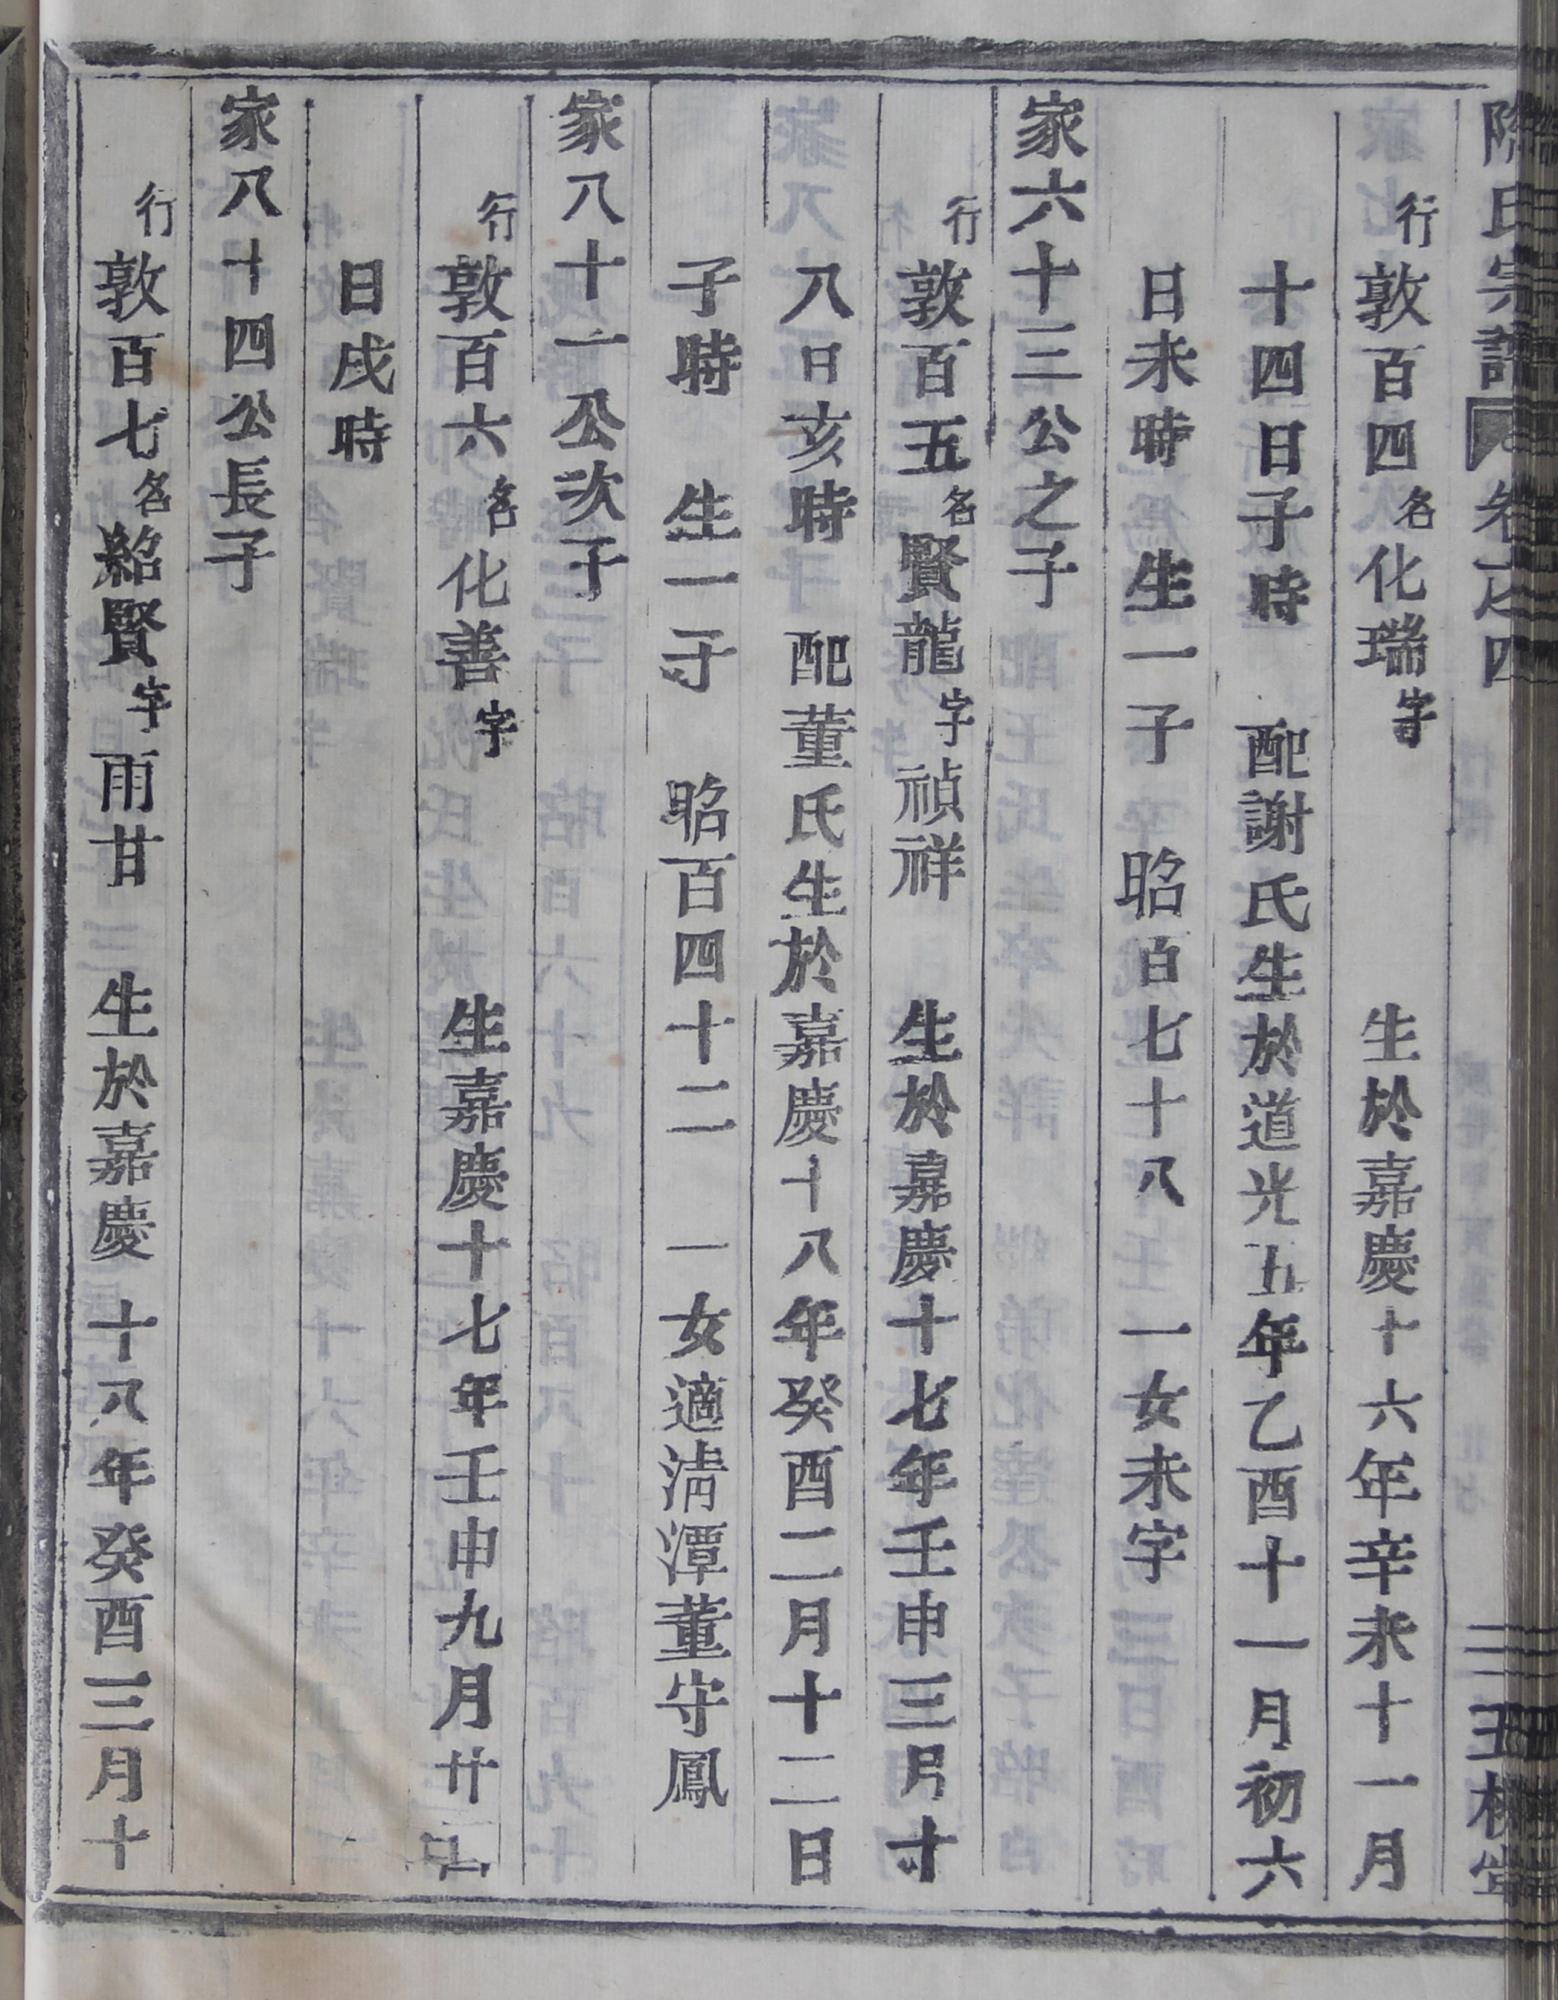 陳氏宗譜 卷之四
行敦百四名化瑞字 生於嘉慶十六年辛未十一月
十四日子時 配謝氏生於道光五年乙酉十一月初六
日未時 生一子 昭百七十八 一女未字
家六十三公之子
行敦百五名賢龍字禎祥 生於嘉慶十七年壬申三月廿
八日亥時 配董氏生於嘉慶十八年癸酉二月十二日
子時 生一子 昭百四十二 一女適淸潭董守鳳
家八十一公次子
行敦百六名化善字 生嘉慶十七年壬申九月廿
日戌時
家八十四公長子
行敦百七名紹賢字雨甘 生於嘉慶十八年癸酉三月十